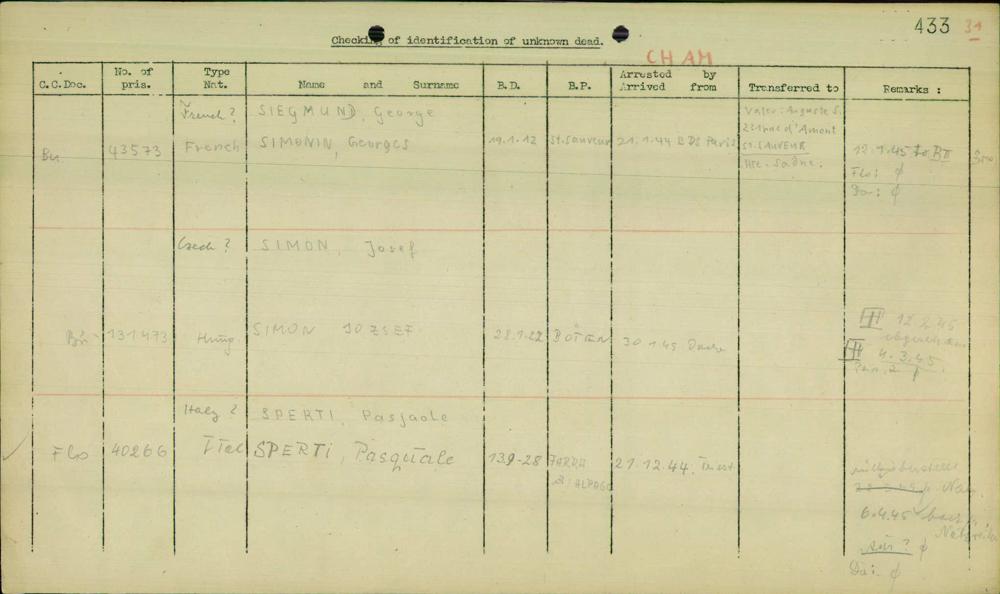 433 31
Checking of identification of unknown dead.
CHAM
C.C.Doc. No. of pris. Type Nat. Name and Surname B.D. B.P. Arrested by Arrived from Transferred to Remarks :
French? SIEGMUND, George Vater: Auguste S.
Bu. 43573 French SIMONIN, Georges 19.1.12 St. Sauveur 21.1.44 BDS Paris d'Amont
St. SAUVEUR
Hte. Saône.
12.1.45 to BII
Flo: ∅
Da: ∅
Czech ? SIMON, Josef
Bu 131473 Hung. SIMON JOZSEF 28.1.22 30.1.45
12.2.45
4.3.45
Italy ? SPERTI, Pasjaole
Flo 40266 Ital SPERTI, Pasquale 13.9-28 FARRA 21.12.44 Triest
d'ALPAGO
6.4.45
∅
Da: ∅